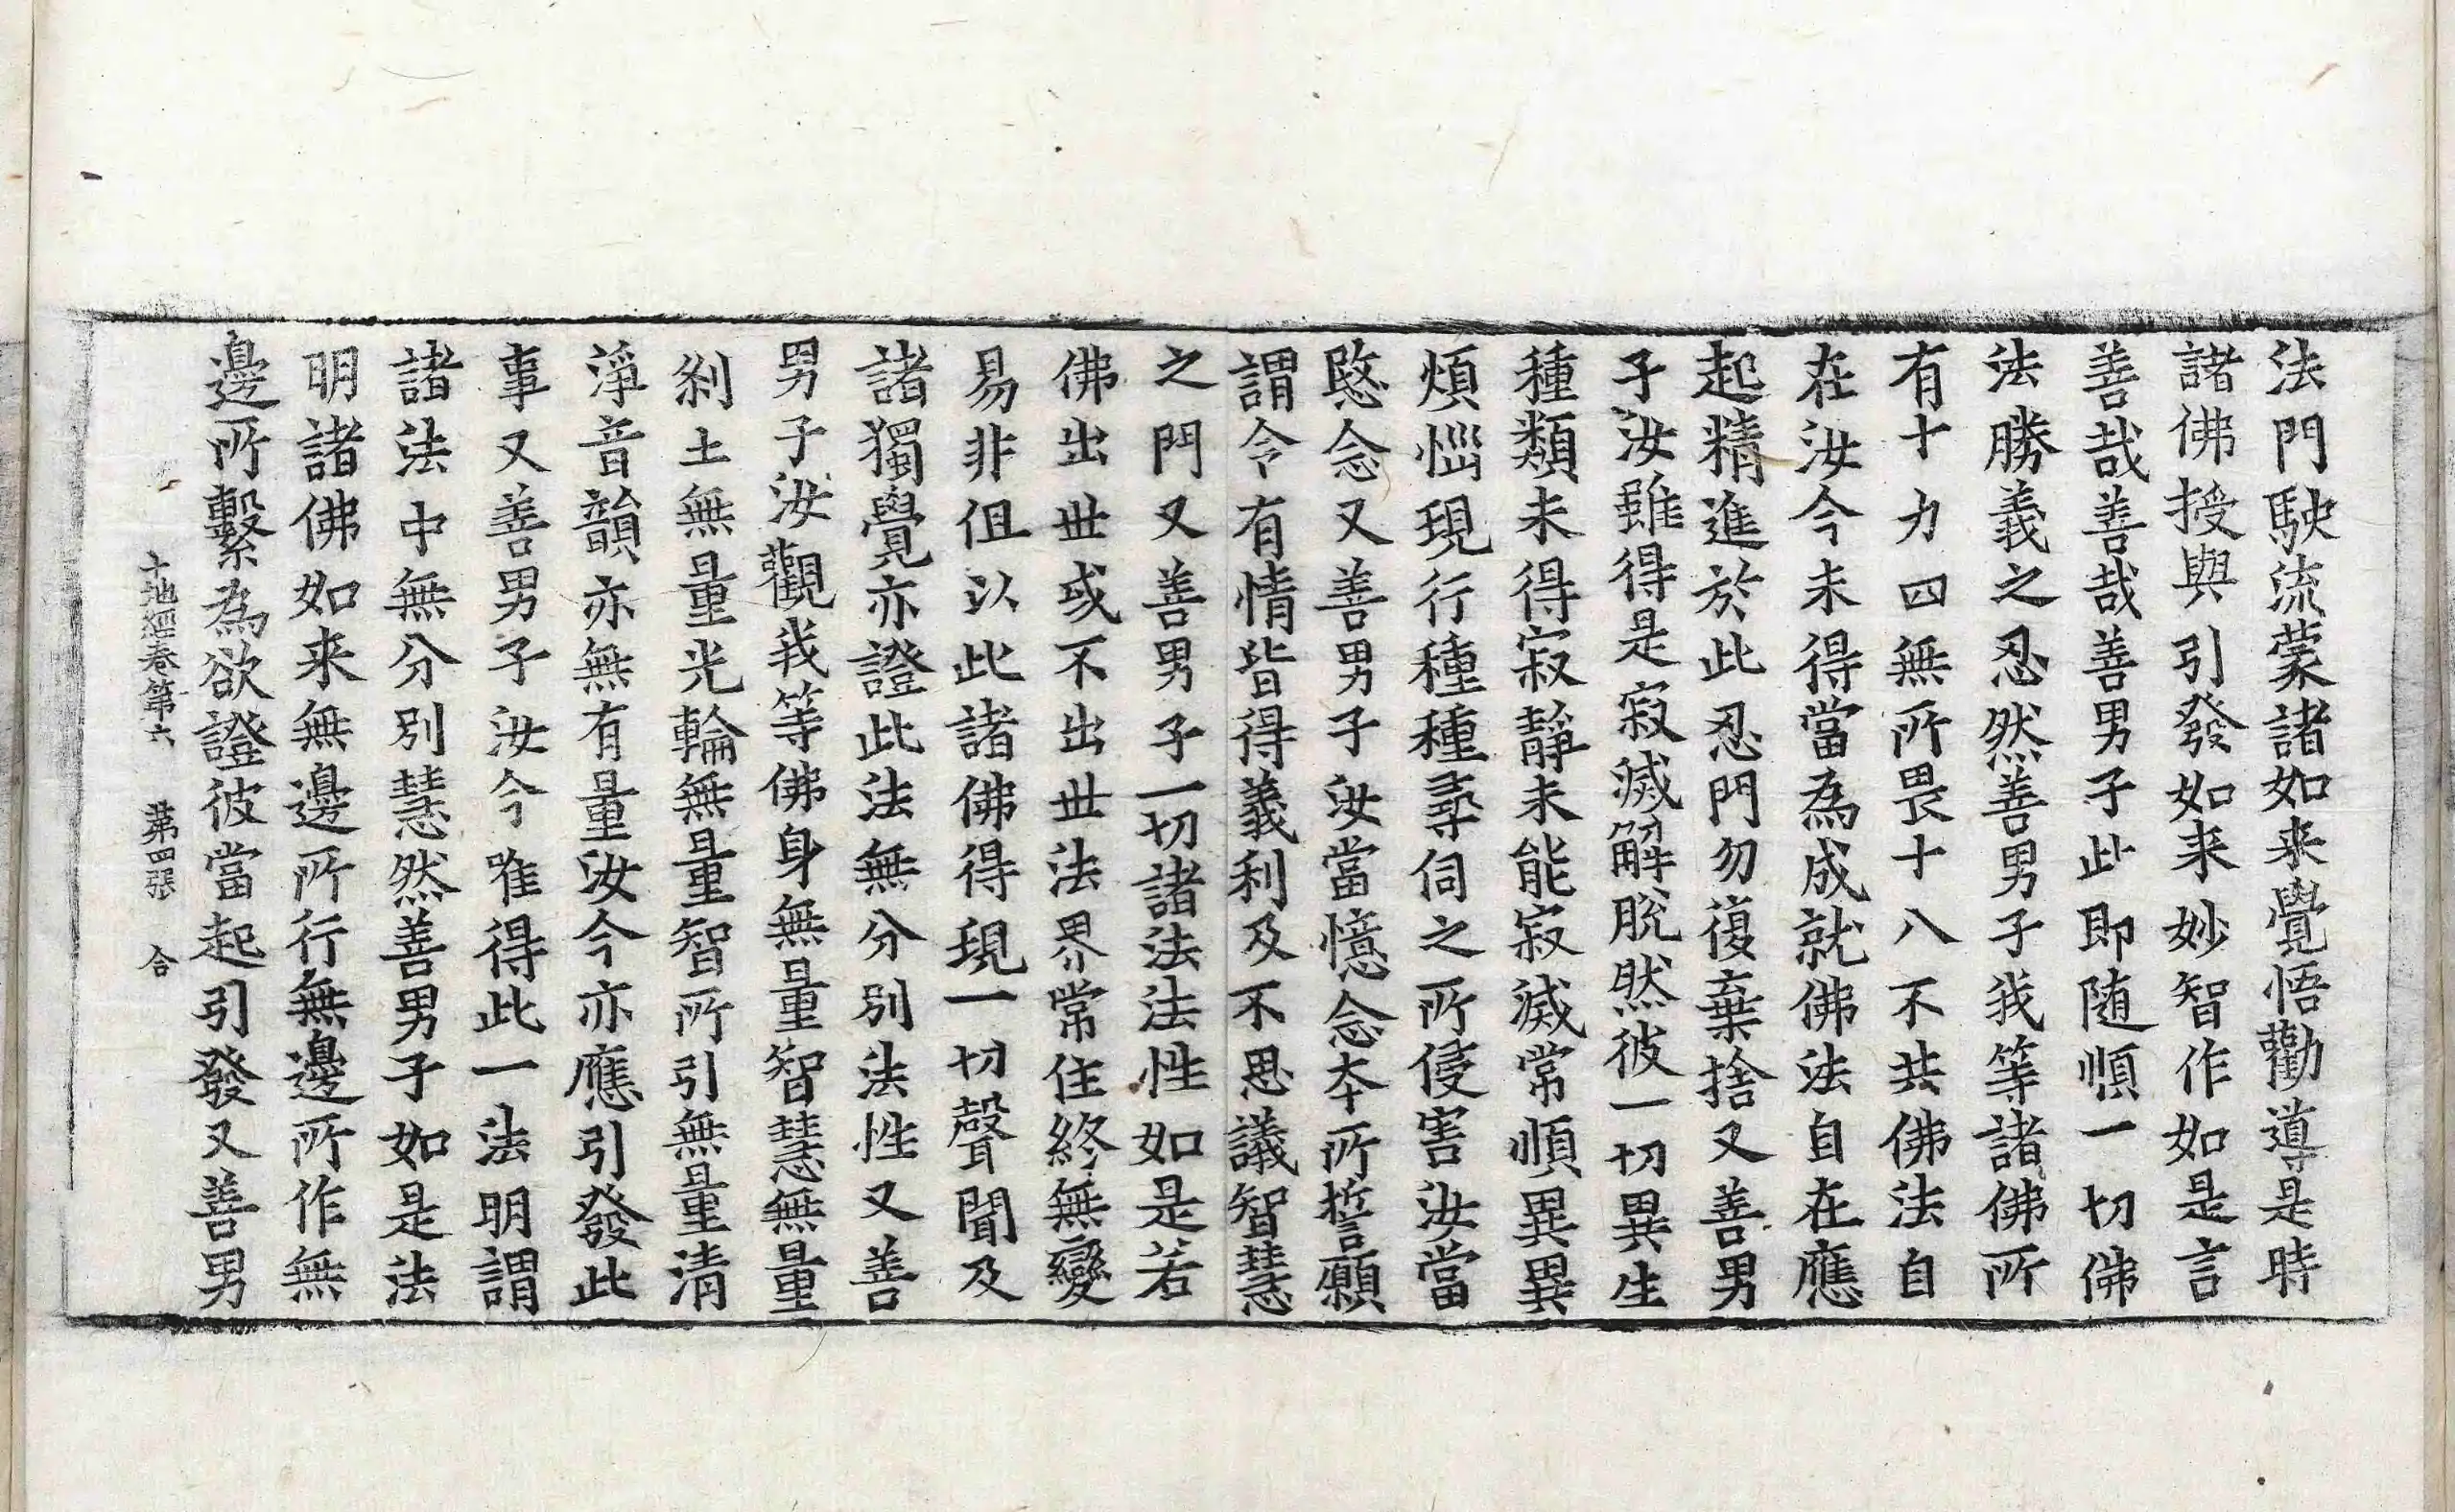 法門駛流蒙諸如来覺悟勸導是時
諸佛授與引發如来妙智作如是言
善哉善哉善男子此即随順一切佛
法勝義之忍然善男子我等諸佛所
有十力四無所畏十八不共佛法自
在汝今未得當為成就佛法自在應
起精進於此忍門勿復棄捨又善男
子汝雖得是寂滅解脫然彼一切異生
種類未得寂静未能寂滅常順異異
煩惱現行種種尋伺之所侵害汝當
愍念又善男子汝當憶念本所誓願
謂令有情皆得義利及不思議智慧
之門又善男子一切諸法法性如是若
佛出世或不出世法界常住終無變
易非但以此諸佛得現一切聲聞及
諸獨覺亦證此法無分別法性又善
男子汝觀我等佛身無量智慧無量
刹土無量光輪無量智所引無量清
淨音韻亦無有量汝今亦應引發此
事又善男子汝今唯得此一法明謂
諸法中無分別慧然善男子如是法
明諸佛如来無邊所行無邊所作無
邊所繫為欲證彼當起引發又善男
十地經卷第六 第四張 合